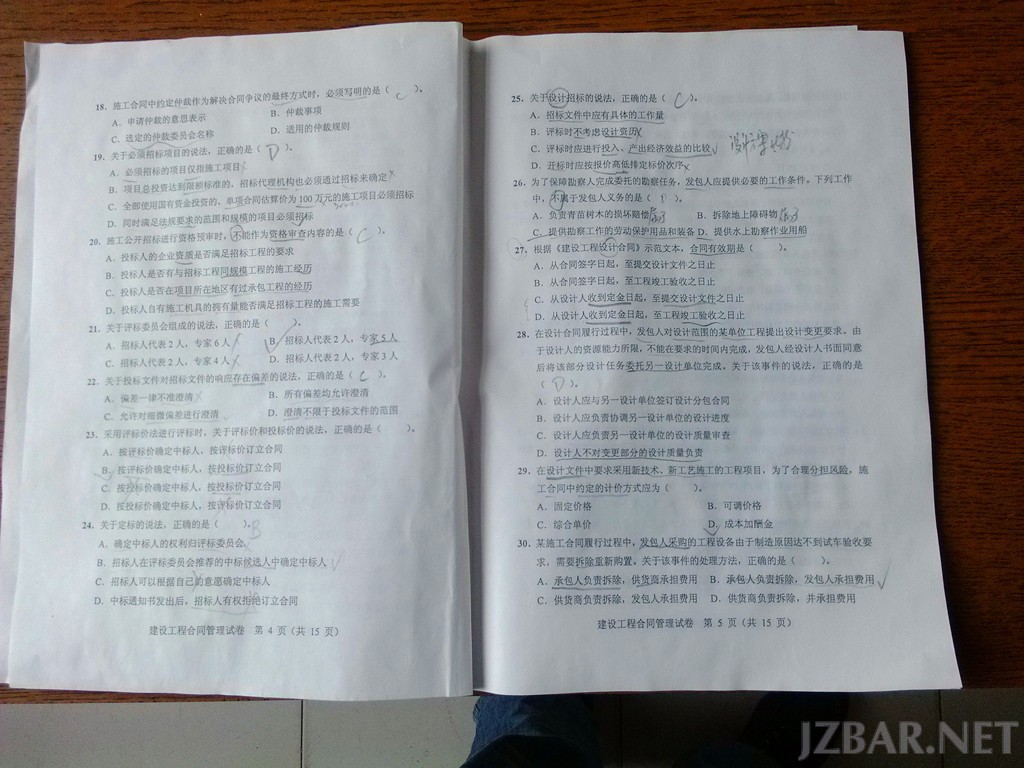 18. 施工合同中约定仲裁作为解决合同争议的最终方式时，必须写明的是（ C ）。
A. 申请仲裁的意思表示 B. 仲裁事项
C. 选定的仲裁委员会名称 D. 适用的仲裁规则
19. 关于必须招标项目的说法，正确的是（ D ）。
A. 必须招标的项目仅指施工项目
B. 项目总投资达到限额标准的，招标代理机构也必须通过招标来确定
C. 全部使用国有资金投资的，单项合同估算价为 100 万元的施工项目必须招标
D. 同时满足法规要求的范围和规模的项目必须招标
20. 施工公开招标进行资格预审时，不能作为资格审查内容的是（ C ）。
A. 投标人的企业资质是否满足招标工程的要求
B. 投标人是否有与招标工程同规模工程的施工经历
C. 投标人是否在项目所在地区有过承包工程的经历
D. 投标人自有施工机具的拥有量能否满足招标工程的施工需要
21. 关于评标委员会组成的说法，正确的是（ ）。
A. 招标人代表 2 人，专家 6 人 B. 招标人代表 2 人，专家 5 人
C. 招标人代表 2 人，专家 4 人 D. 招标人代表 2 人，专家 3 人
22. 关于投标文件对招标文件的响应存在偏差的说法，正确的是（ C ）。
A. 偏差一律不准澄清 B. 所有偏差均允许澄清
C. 允许对细微偏差进行澄清 D. 澄清不限于投标文件的范围
23. 采用评标价法进行评标时，关于评标价和投标价的说法，正确的是（ ）。
A. 按评标价确定中标人，按评标价订立合同
B. 按评标价确定中标人，按投标价订立合同
C. 按投标价确定中标人，按投标价订立合同
D. 按投标价确定中标人，按评标价订立合同
24. 关于定标的说法，正确的是（ ）。 B
A. 确定中标人的权利归评标委员会
B. 招标人在评标委员会推荐的中标候选人中确定中标人
C. 招标人可以根据自己的意愿确定中标人
D. 中标通知书发出后，招标人有权拒绝订立合同
建设工程合同管理试卷 第 4 页（共 15 页）
25. 关于设计招标的说法，正确的是（ C ）。
A. 招标文件中应有具体的工作量
B. 评标时不考虑设计资历
C. 评标时应进行投入、产出经济效益的比较
D. 开标时应按报价高低排定标价次序
26. 为了保障勘察人完成委托的勘察任务，发包人应提供必要的工作条件。下列工作
中，不属于发包人义务的是（ ）。
A. 负责青苗树木的损坏赔偿 B. 拆除地上障碍物
C. 提供勘察工作的劳动保护用品和装备 D. 提供水上勘察作业用船
27. 根据《建设工程设计合同》示范文本，合同有效期是（ ）。
A. 从合同签字日起，至提交设计文件之日止
B. 从合同签字日起，至工程竣工验收之日止
C. 从设计人收到定金日起，至提交设计文件之日止
D. 从设计人收到定金日起，至工程竣工验收之日止
28. 在设计合同履行过程中，发包人对设计范围的某单位工程提出设计变更要求。由
于设计人的资源能力所限，不能在要求的时间内完成，发包人经设计人书面同意
后将该部分设计任务委托另一设计单位完成。关于该事件的说法，正确的是
（ D ）。
A. 设计人应与另一设计单位签订设计分包合同
B. 设计人应负责协调另一设计单位的设计进度
C. 设计人应负责另一设计单位的设计质量审查
D. 设计人不对变更部分的设计质量负责
29. 在设计文件中要求采用新技术、新工艺施工的工程项目，为了合理分担风险，施
工合同中约定的计价方式应为（ ）。
A. 固定价格 B. 可调价格
C. 综合单价 D. 成本加酬金
30. 某施工合同履行过程中，发包人采购的工程设备由于制造原因达不到试车验收要
求，需要拆除重新购置。关于该事件的处理方法，正确的是（ ）。
A. 承包人负责拆除，供货商承担费用 B. 承包人负责拆除，发包人承担费用
C. 供货商负责拆除，发包人承担费用 D. 供货商负责拆除，并承担费用
建设工程合同管理试卷 第 5 页（共 15 页）
JZBAR.NET